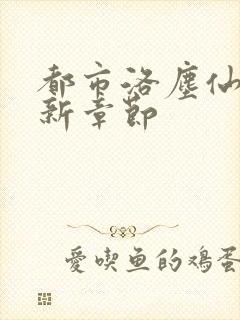 都市洛塵仙
新章節
愛喫鱼的鸡蛋